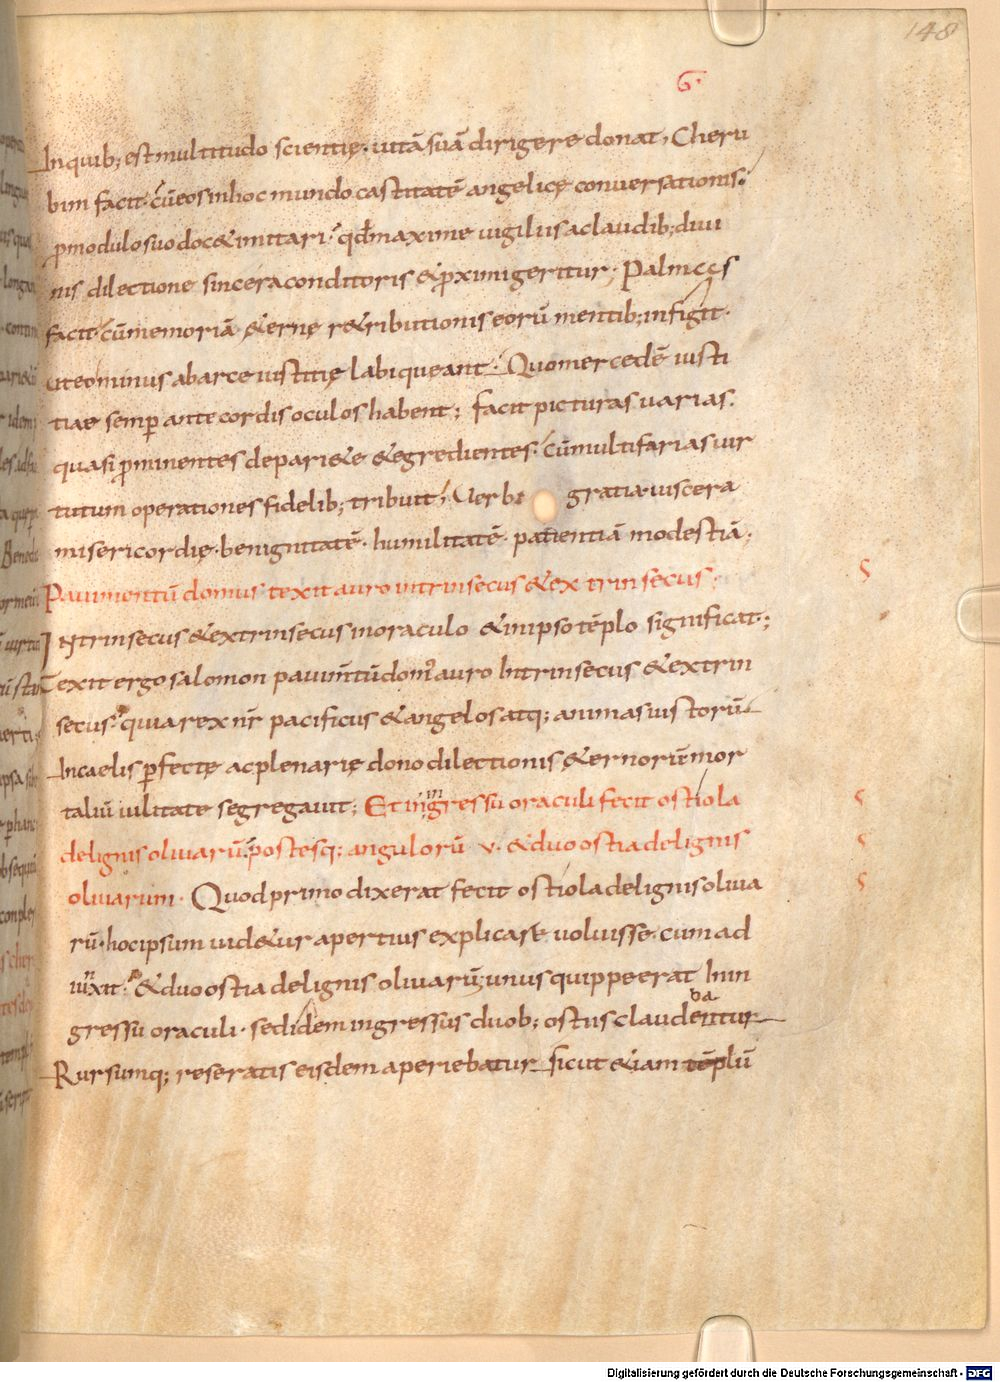 148
G·
Inquib; est multitudo scientię · uitā suā dirigere donat; Cheru
bim facit · cū eos in hoc mundo castitatē angelicę conuersationis ·
p modulo suo doc& imitari · qđ maxime uigiliis ac laudib; diui
nis dilectione sincera conditoris & pximi geritur; Palmas
facit · cū memoriā &ernę r&ributionis eorū mentib; infigit ·
ut eo minus ab arce iustitię labi queant · Quo mercedē iusti
tiae semp ante cordis oculos habent; facit picturas uarias ·
quasi pminentes de pari&e & egredientes · cū multifarias uir
tutum operationes fidelib; tribuit; Uerbi gratia uiscera
misericordię · benignitatē · humilitatē · patientiā modestiā;
Pauimentū domus texit auro intrinsecus & extrinsecus ·
Intrinsecus & extrinsecus in oraculo & in ipso tēplo significat ·;
Texit ergo salomon pauim̄tū dom' auro Intrinsecus & extrin
secus · quia rex nr̄ pacificus & angelos atq; animas iustorū
In caelis pfectę ac plenarię dono dilectionis &ernoriē mor
taliū uilitate segregauit; Et in ingressu oraculi fecit ostiola
de lignis oliuarū · postesq; angulorū · v · & duo ostia de lignis
oliuarum · Quod primo dixerat fecit ostiola de lignis oliua
rū · hoc ipsum uid&ur apertius explicare uoluisse · cum ad
iunxit · & duo ostia de lignis oliuarū; unus quippe erat In in
gressu oraculi · sed idem ingressus duob; ostiis claudebatur
Rursumq; reseratis eisdem aperiebatur sicut & iam tēplū
Digitalisierung gefördert durch die Deutsche Forschungsgemeinschaft - DFG